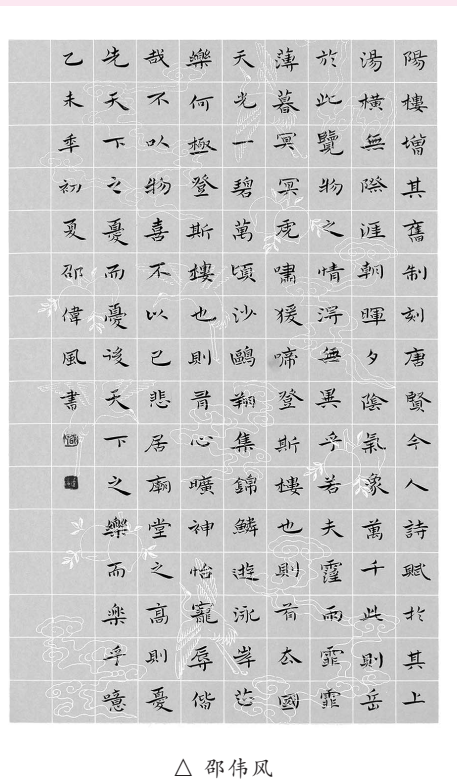 陽樓增其舊制刻唐賢今人詩賦於其上
湯橫無際涯朝暉夕陰氣象萬千此則岳
於此覽物之情淂無異乎若夫霪雨霏霏
薄暮冥冥虎嘯猨啼登斯樓也則有去國
天光一碧萬頃沙鷗翔集錦鱗遊泳岸芷
樂何極登斯樓也則有心曠神怡寵辱偕
哉不以物喜不以己悲居廟堂之高則憂
先天下之憂而憂後天下之樂而楽乎噫
乙未秊初夏邵偉風書
△ 邵伟风